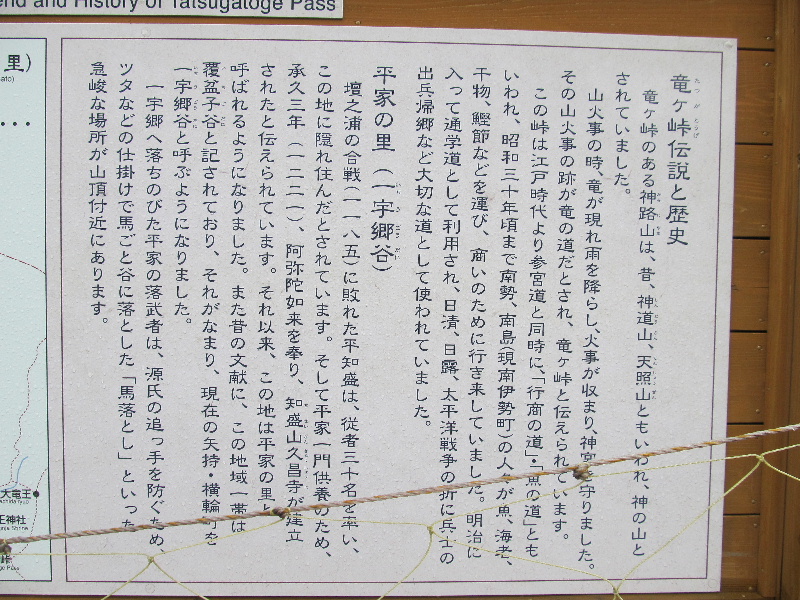 end and History of Tatsugatoge Pass
竜ヶ峠伝説と歴史
竜ヶ峠のある神路山は、昔、神道山、天照山ともいわれ、神の山と
されていました。
山火事の時、竜が現れ雨を降らし、火事が収まり、神宮を守りました。
その山火事の跡が竜の道だとされ、竜ヶ峠と伝えられています。
この峠は江戸時代より参宮道と同時に、「行商の道」・「魚の道」とも
いわれ、昭和三十年頃まで南勢、南島(現南伊勢町)の人々が魚、海老、
干物、鰹節などを運び、商いのために行き来していました。明治に
入って通学道として利用され、日清、日露、太平洋戦争の折に兵士の
出兵帰郷など大切な道として使われていました。
平家の里(一宇郷谷)
壇之浦の合戦(一一八五)に敗れた平知盛は、従者三十名を率い、
この地に隠れ住んだとされています。そして平家一門供養のため、
承久三年(一二二一)、阿弥陀如来を奉り、知盛山久昌寺が建立
されたと伝えられています。それ以来、この地は平家の里と
呼ばれるようになりました。また昔の文献に、この地域一帯は
覆盆子谷と記されており、それがなまり、現在の矢持・横輪町を
一宇郷谷と呼ぶようになりました。
一宇郷へ落ちのびた平家の落武者は、源氏の追っ手を防ぐため、
ツタなどの仕掛けで馬ごと谷に落とした「馬落とし」といった
急峻な場所が山頂付近にあります。
里)
ato)
大竜王
王神社
峠